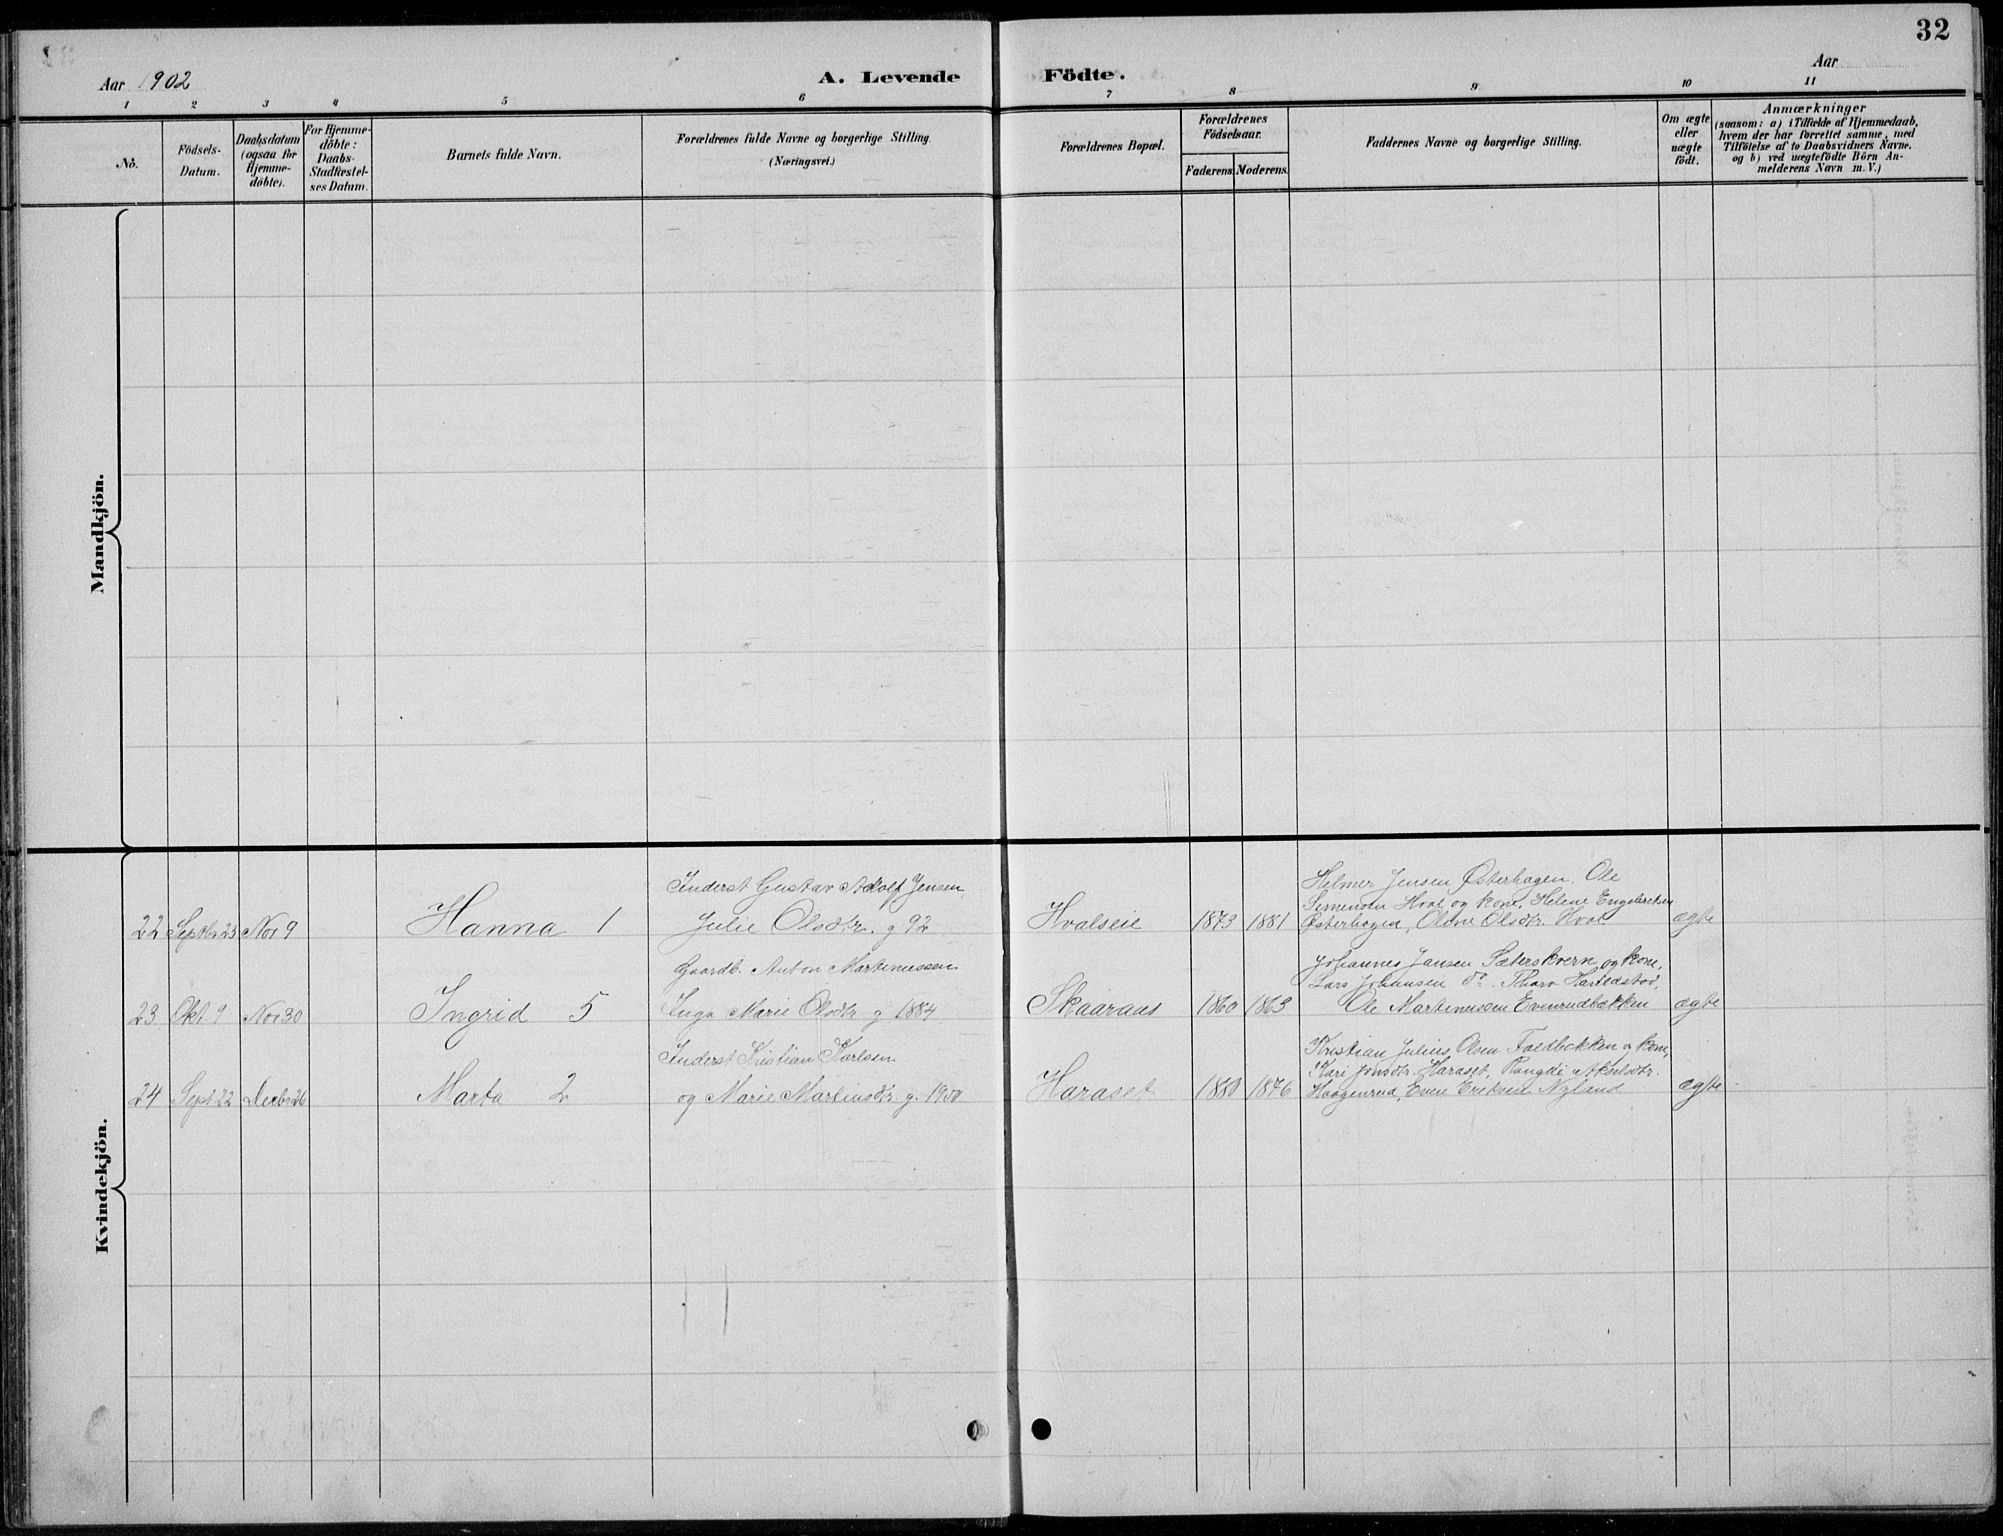 32
Aar 1902
A. Levende Födte.
Aar
1 2 3 4 5 6 7 8 9 10 11
No.
Födsels-
Datum.
Daabsdatum
(ogsaa for
Hjemme-
döbte).
For Hjemme-
döbte:
Daabs-
Stadfæstel-
ses Datum.
Barnets fulde Navn.
Forældrenes fulde Navne og borgerlige Stilling.
(Næringsvei.)
Forældrenes Bopæl.
Forældrenes
Födselsaar.
Faderens. Moderens.
Faddernes Navne og borgerlige Stilling.
Om ægte
eller
uægte
födt.
Anmærkninger
(saasom: a) i Tilfælde af Hjemmedaab,
hvem der har forrettet samme, med
Tilföielse af to Daabsvidners Navne.
og b) ved uægtefödte Börn An-
melderens Navn m. V.)
Mandkjön.
Kvindekjön.
Inderst Gustav Adolf Jensen
22 Septbr 23 Nov 9 Hanna 1 Julie Olsdtr. g 92 Hvalseie 1873 1881
Helmer Jensen Østerhagen. Ole
Simensen Hval og kone, Helene Engebretsen
Østerhagen, Oline Olsdtr. Hval ægte
Gaardb. Anton Martinussen
23 Okt. 9 Nov 30 Ingrid 5 Inga Marie Olsdtr g 1884 Skaaraas 1860 1863
Johannes Jansen Sæterskvern og kone,
Lars Johansen do. Thora
Ole Martinussen Evenrudbækken ægte
Inderst Kristian Karlsen
24 Sept 22 Decbr 26 Marta 2 og Marie Martinsdtr g. 1900 Haraset 1880 1876
Kristian Julius Olsen Foldbækken & kone,
Kari Jonsdtr. Haraset, Akselsdtr.
Haagenrud, Even Eriksen Nyland ægte